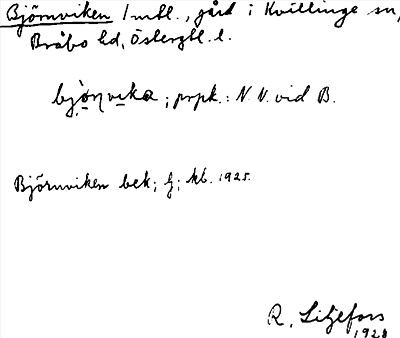 Björnviken 1 mtl., gård i Kvillinge sn,
Bråbo hd, Östergtl. l.
bjò̩ṇvika; prpk.: N. N. vid B.
Björnviken bek; f; kb. 1925.
R. Liljefors
1928